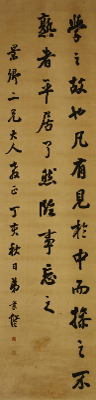 學之故也凡有見於中而操之不
熟者平居了然臨事忘之
景卿二兄大人教正丁亥秋日弟